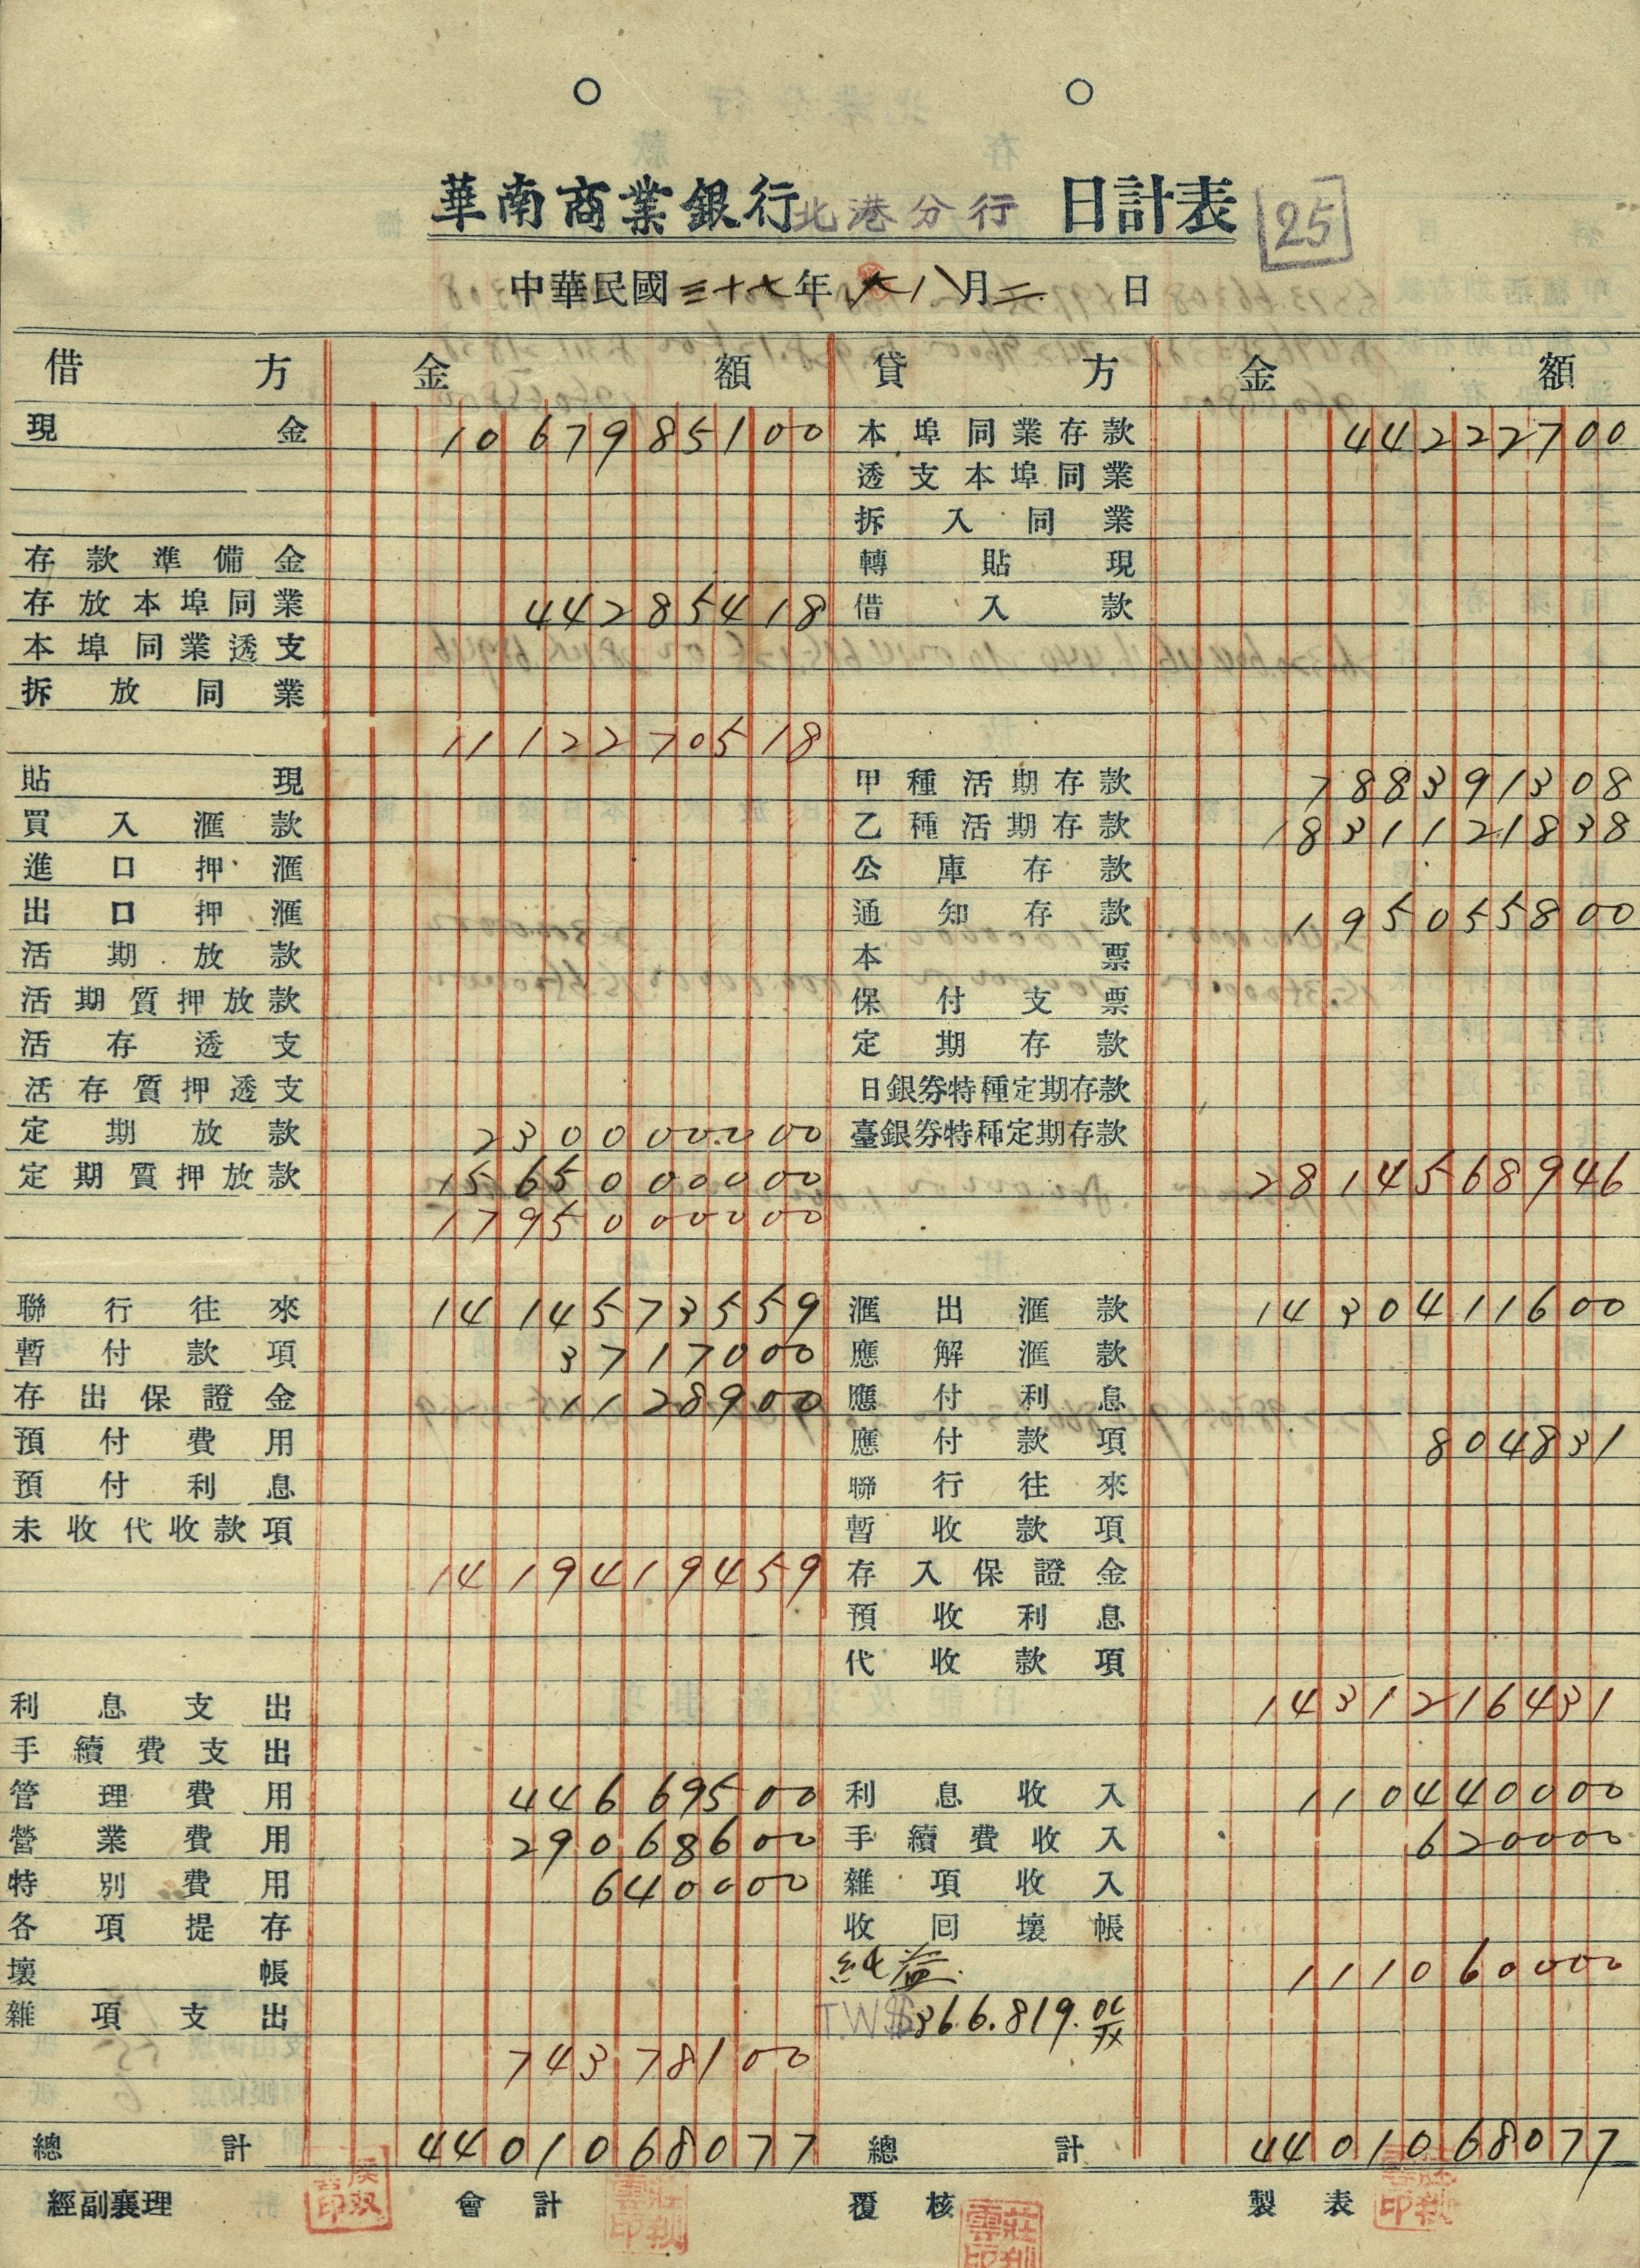 華南商業銀行北港分行 日計表 25
中華民國三十七年八月二日
借方 金額 貸方 金額
現金 1067985100 本埠同業存款 44222700
透支本埠同業
拆入同業
存款準備金 轉貼現
存放本埠同業 44285418 借入款
本埠同業透支
拆放同業
1112270518
貼現 甲種活期存款 788391308
買入滙款 乙種活期存款 1831121838
進口押滙 公庫存款
出口押滙 通知存款 195055800
活期放款 本票
活期質押放款 保付支票
活存透支 定期存款
活存質押透支 日銀券特種定期存款
定期放款 230000000 臺銀券特種定期存款
定期質押放款 1565000000 2814568946
1795000000
聯行往來 1414573559 滙出滙款 1430411600
暫付款項 3717000 應解滙款
存出保證金 1128900 應付利息
預付費用 應付款項 804831
預付利息 聯行往來
未收代收款項 暫收款項
1419419459 存入保證金
預收利息
代收款項
利息支出 1431216431
手續費支出
管理費用 44669500 利息收入 110440000
營業費用 29068600 手續費收入 620000
特別費用 640000 雜項收入
各項提存 收回壞帳
壞帳 純益 111060000
雜項支出 T.W$366.819.
74378100
總計 4401068077 總計 4401068077
經副襄理 會計 覆核 製表